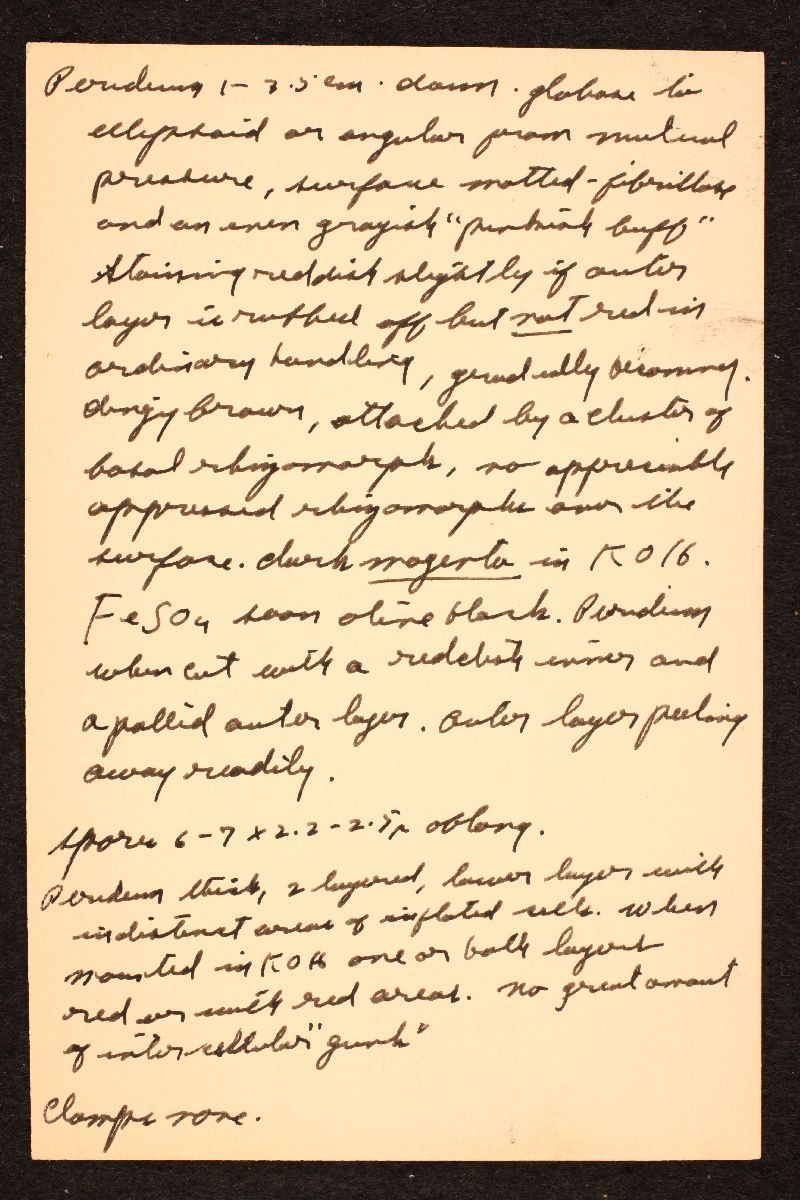 Peridium 1-3.5 cm. diam. globose to
ellipsoid or angular from mutual
pressure, surface matted-fibrillose
and an even grayish "pinkish buff"
staining reddish slightly if outer
layer is rubbed off but not red in
ordinary handling, gradually becoming
dingy brown, attached by a cluster of
basal rhizomorphs, no appreciable
appressed rhizomorphs over the
surface. dark magenta in KOH.
FeSO4 soon olive black. Peridium
when cut with a reddish inner and
a pallid outer layer. outer layer peeling
away readily.
spores 6-7 x 2.2-2.5µ oblong.
Peridium thick, 2 layered, lower layer with
indistinct areas of inflated cells. when
mounted in KOH one or both layers
red or with red areas. no great amount
of intercellular "gunk"
Clamps none.